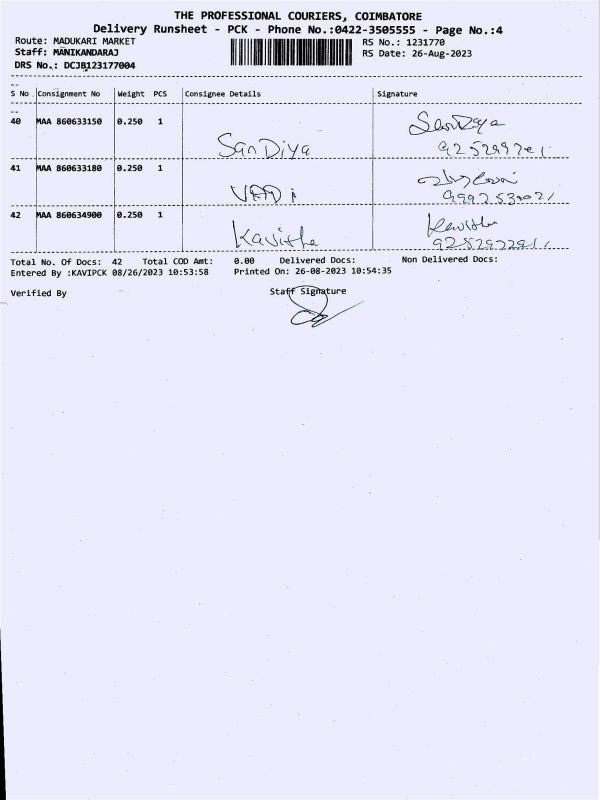 THE PROFESSIONAL COURIERS, COIMBATORE
Delivery Runsheet - PCK - Phone No.:0422-3505555 - Page No.:4
Route: MADUKARI MARKET
RS No.: 1231770
Staff: MANIKANDARAJ
RS Date: 26-Aug-2023
DRS No.: DCJB123177004
S No Consignment No Weight PCS Consignee Details Signature
40 MAA 860633150 0.250 1
San Diya
41 MAA 860633180 0.250 1
42 MAA 860634900 0.250 1
Kavitha
Total No. Of Docs: 42 Total COD Amt: 0.00 Delivered Docs: Non Delivered Docs:
Entered By :KAVIPCK 08/26/2023 10:53:58 Printed On: 26-08-2023 10:54:35
Verified By Staff Signature